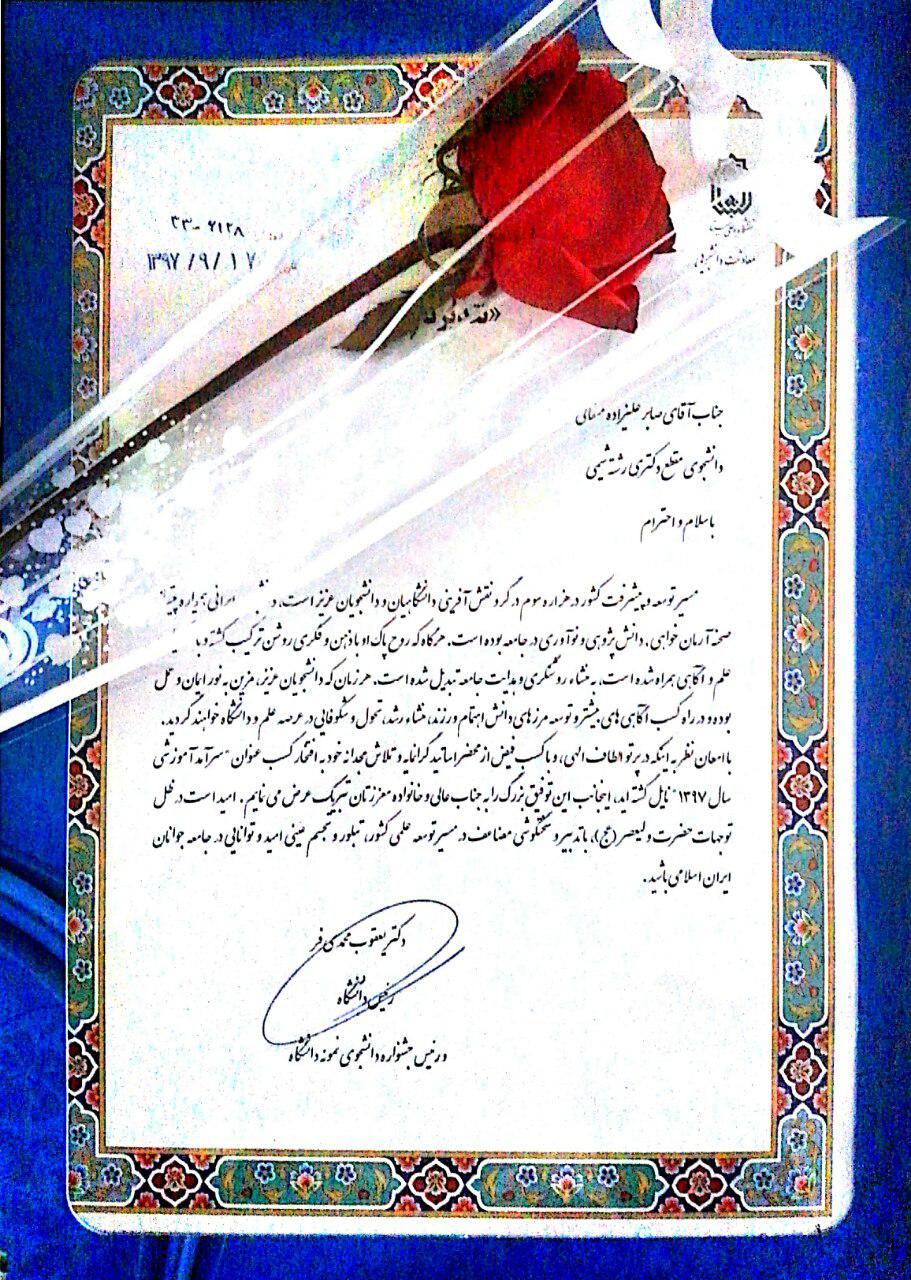 ۱۳۹۷/۹/۱۷
معاونت دانشجویی
جناب آقای صابر علیزاده
دانشجوی مقطع دکتری رشته شیمی
با سلام و احترام
مسیر توسعه و پیشرفت کشور در هزاره سوم در گرو نقش آفرینی دانشگاهیان و دانشجویان عزیز است، ایرانی همواره
صحنه آرمان خواهی، دانش پژوهی و نوآوری در جامعه بوده است. هرگاه که روح پاک او با ذهن و فکری روشن ترکیب گشته و با
علم و آگاهی همراه شده است، به منشاء روشنگری و هدایت جامعه تبدیل شده است. هر زمان که دانشجویان عزیز، مزین به نور ایمان و عمل
بوده و در راه کسب آگاهی های بیشتر و توسعه مرزهای دانش اهتمام ورزند، منشاء رشد، تحول و شکوفایی در عرصه علم و دانشگاه خواهند گردید.
با امعان نظر به اینکه در پرتو الطاف الهی، و با کسب فیض از محضر اساتید گرانمایه و تلاش مجدانه خود به افتخار کسب عنوان "سرآمد آموزشی
سال ۱۳۹۷" نایل گشته اید، اینجانب این توفیق بزرگ را به جناب عالی و خانواده معززتان تبریک عرض می نمایم. امید است در ظل
توجهات حضرت ولیعصر (عج)، با تدبیر و سختکوشی مضاعف در مسیر توسعه علمی کشور، تبلور و تجسم عینی امید و توانایی در جامعه جوانان
ایران اسلامی باشید.
دکتر یعقوب محمدی فر
رئیس دانشگاه
و رئیس جشنواره دانشجوی نمونه دانشگاه